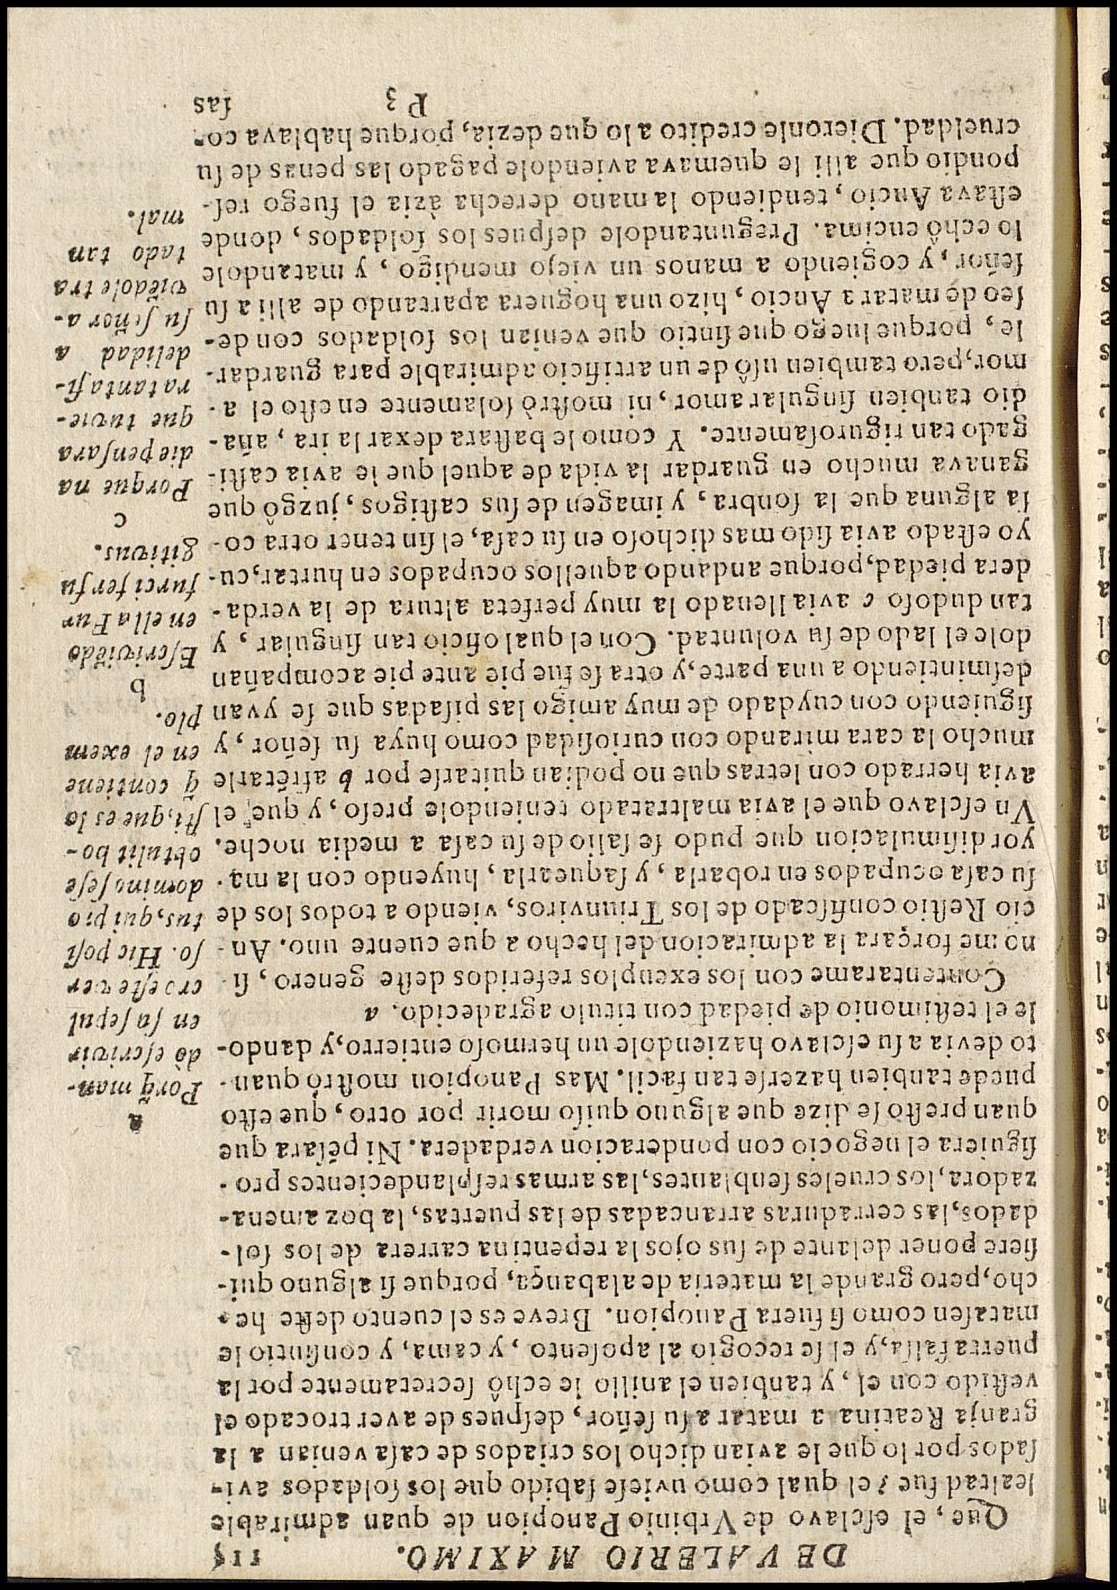 DE VALERIO MAXIMO. 115
Que, el esclavo de Vrbinio Panopion de quan admirable
lealtad fue? el qual como uviese sabido que los soldados avi-
sados por lo que le avian dicho los criados de casa venian a la
granja Reatina a matar a su señor, despues de aver trocado el
vestido con el, y tanbien el anillo le echô secretamente por la
puerta falsa, y el se recogio al aposento, y cama, y consintio le
matasen como si fuera Panopion. Breve es el cuento deste he-
cho, pero grande la materia de alabança, porque si alguno qui-
siere poner delante de sus ojos la repentina carrera de los sol-
dados, las cerraduras arrancadas de las puertas, la boz amena-
zadora, los crueles senblantes, las armas resplandecientes pro-
siguiera el negocio con ponderacion verdadera. Ni pẽsara que
quan presto se dize que alguno quiso morir por otro, que esto
puede tanbien hazerse tan facil. Mas Panopion mostrò quan-
to devia a su esclavo haziendole un hermoso entierro, y dando-
le el testimonio de piedad con titulo agradecido. a
Contentarame con los exenplos referidos deste genero, si
no me forçara la admiracion del hecho a que cuente uno. An-
cio Restio confiscado de los Triunviros, viendo a todos los de
su casa ocupados en robarla, y saquearla, huyendo con la ma-
yor disimulacion que pudo se salio de su casa a media noche.
Vn esclavo que el avia maltratado teniendole preso, y que el
avia herrado con letras que no podian quitarse por b afrẽtarle
mucho la cara mirando con curiosidad como huya su señor, y
siguiendo con cuydado de muy amigo las pisadas que se yvan
desmintiendo a una parte, y otra se fue pie ante pie acompañan
dole el lado de su voluntad. Con el qual oficio tan singular, y
tan dudoso c avia llenado la muy perfeta altura de la verda-
dera piedad, porque andando aquellos ocupados en hurtar, cu-
yo estado avia sido mas dichoso en su casa, el sin tener otra co-
sa alguna que la sonbra, y imagen de sus castigos, juzgô que
ganava mucho en guardar la vida de aquel que le avia casti-
gado tan rigurosamente. Y como le bastara dexar la ira, aña-
dio tanbien singular amor, ni mostrò solamente en esto el a-
mor, pero tambien usô de un artificio admirable para guardar-
le, porque luego que sintio que venian los soldados con de-
seo de matar a Ancio, hizo una hoguera apartando de alli a su
señor, y cogiendo a manos un viejo mendigo, y matandole
lo echô encima. Preguntandole despues los soldados, donde
estava Ancio, tendiendo la mano derecha àzia el fuego res-
pondio que alli le quemava aviendole pagado las penas de su
crueldad. Dieronle credito a lo que dezia, porque hablava co-
P 3 sas
a
Porq̃ man-
dò escrivir
en su sepul
cro este ver
so. Hic posi
tus, qui pio
domino sese
obtulit ho-
sti, que es lo
q̃ contiene
en el exem
plo.
b
Escriviẽdo
en ella Fur
furcifer fu
gitivus.
c
Porque na
die pensara
que tuvie-
ra tanta fi-
delidad a
su señor a-
viẽdole tra
tado tan
mal.